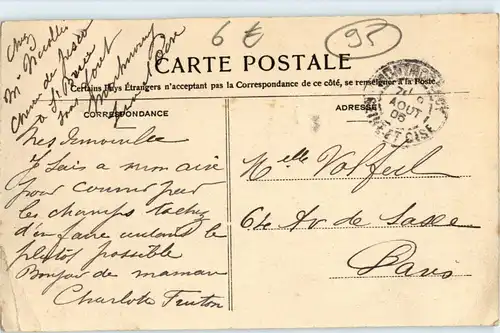 Chez
Mr Nicolle
Chemin de
à St Brice
sous forêt
par Montmorency
Seine et Oise
6 €
95
CARTE POSTALE
Certains Pays Étrangers n'acceptant pas la Correspondance de ce côté, se renseigner à la Poste.
CORRESPONDANCE
ADRESSE
MONTMORENCY
AOUT
06
SEINE-ET-OISE
Mes Demoiselles
Je suis a mon aise
pour courrir par
les champs tachez
d'en faire autant le
plutôt possible
Bonjour de maman
Charlotte
Melle
64 Av de Saxe
Paris